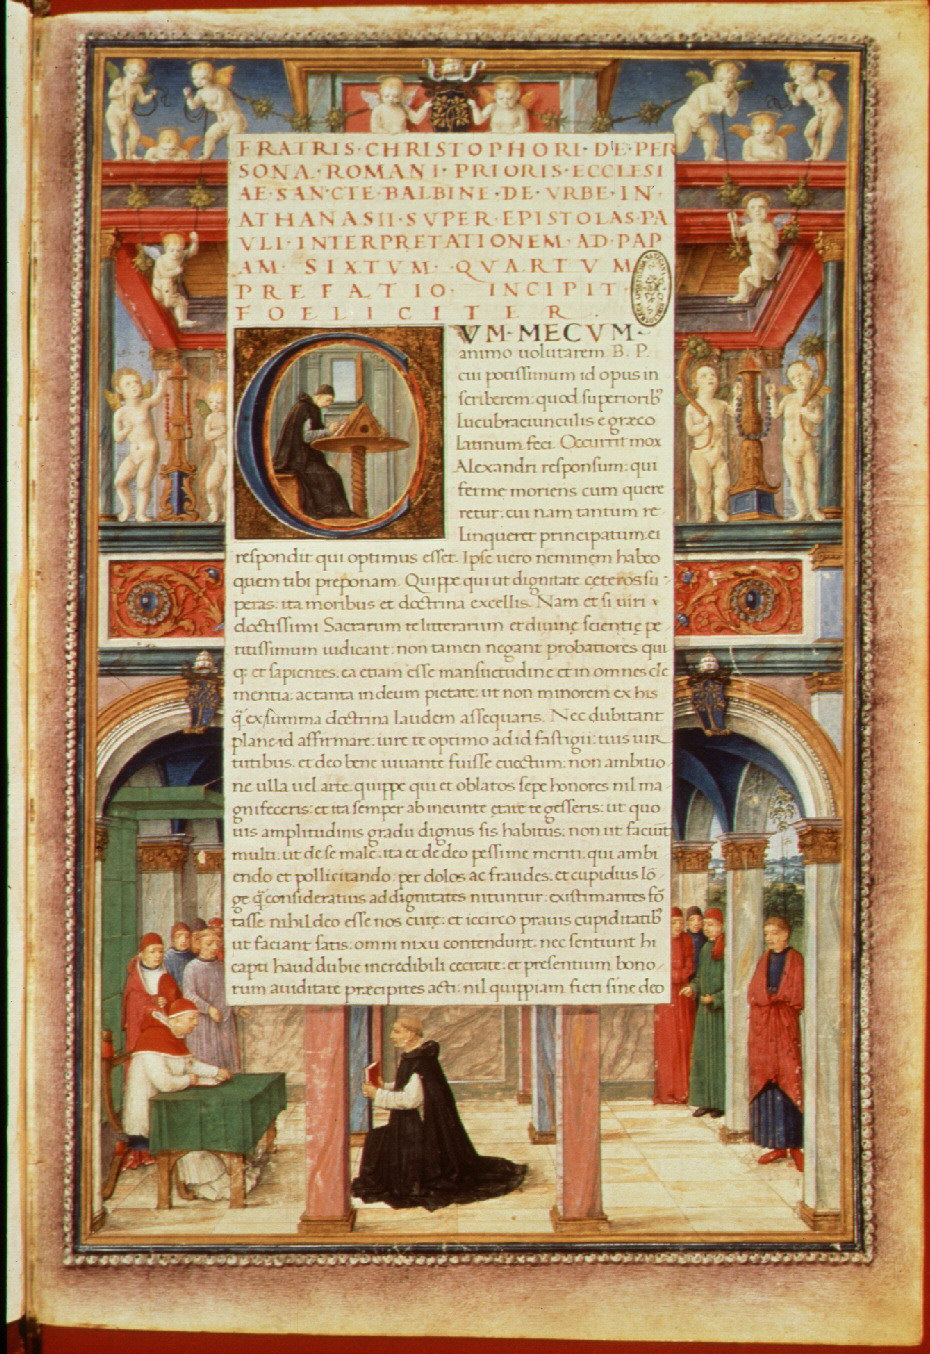 FRATRIS·CHRISTOPHORI·DE·PER
SONA·ROMANI·PRIORIS·ECCLESI
AE·SANCTE·BALBINE·DE·VRBE·IN·
ATHANASII·SVPER·EPISTOLAS·PA
VLI·INTERPRETATIONEM·AD·PAP
AM·SIXTVM·QVARTVM
PREFATIO·INCIPIT·
FOELICITER·
CVM·MECVM·
animo uolutarem B. P.
cui potissimum id opus in
scriberem: quod superiorib9
lucubraciunculis e græco
latinum feci. Occurrit mox
Alexandri responsum: qui
ferme moriens cum quere
retur: cui nam tantum re
linqueret principatum: ei
respondit qui optimus esset. Ipse uero neminem habeo
quem tibi preponam. Quippe qui ut dignitate ceteros su
peras: ita moribus et doctrina excellis. Nam et si uiri
doctissimi Sacrarum te litterarum et diuinę scientię pe
ritissimum iudicant: non tamen negant probatiores qui
q̃ et sapientes. ea etiam esse mansuetudine et in omnes cle
mentia: ac tanta in deum pietate: ut non minorem ex his
q̃ ex summa doctrina laudem assequaris. Nec dubitant
plane id affirmare. iure te optimo ad id fastigii: tuis uir
tutibus. et deo bene iuuante fuisse euectum: non ambitio
ne ulla uel arte. quippe qui et oblatos sepe honores nil ma
gnifeceris: et ita semper ab ineunte etate te gesseris: ut quo
uis amplitudinis gradu dignus sis habitus. non ut faciũt
multi. ut de se male. ita et de deo pessime meriti. qui ambi
endo et pollicitando. per dolos ac fraudes. et cupidius lõ
ge q̃ consideratius ad dignitates nituntur. existimantes fõ
tasse nihil deo esse nos curę: et iccirco prauis cupiditatib9
ut faciant satis. omni nixu contendunt. nec sentiunt hi
capti haud dubie incredibili cecitate: et presentium bono
rum auiditate præcipites acti: nil quippiam fieri sine deo